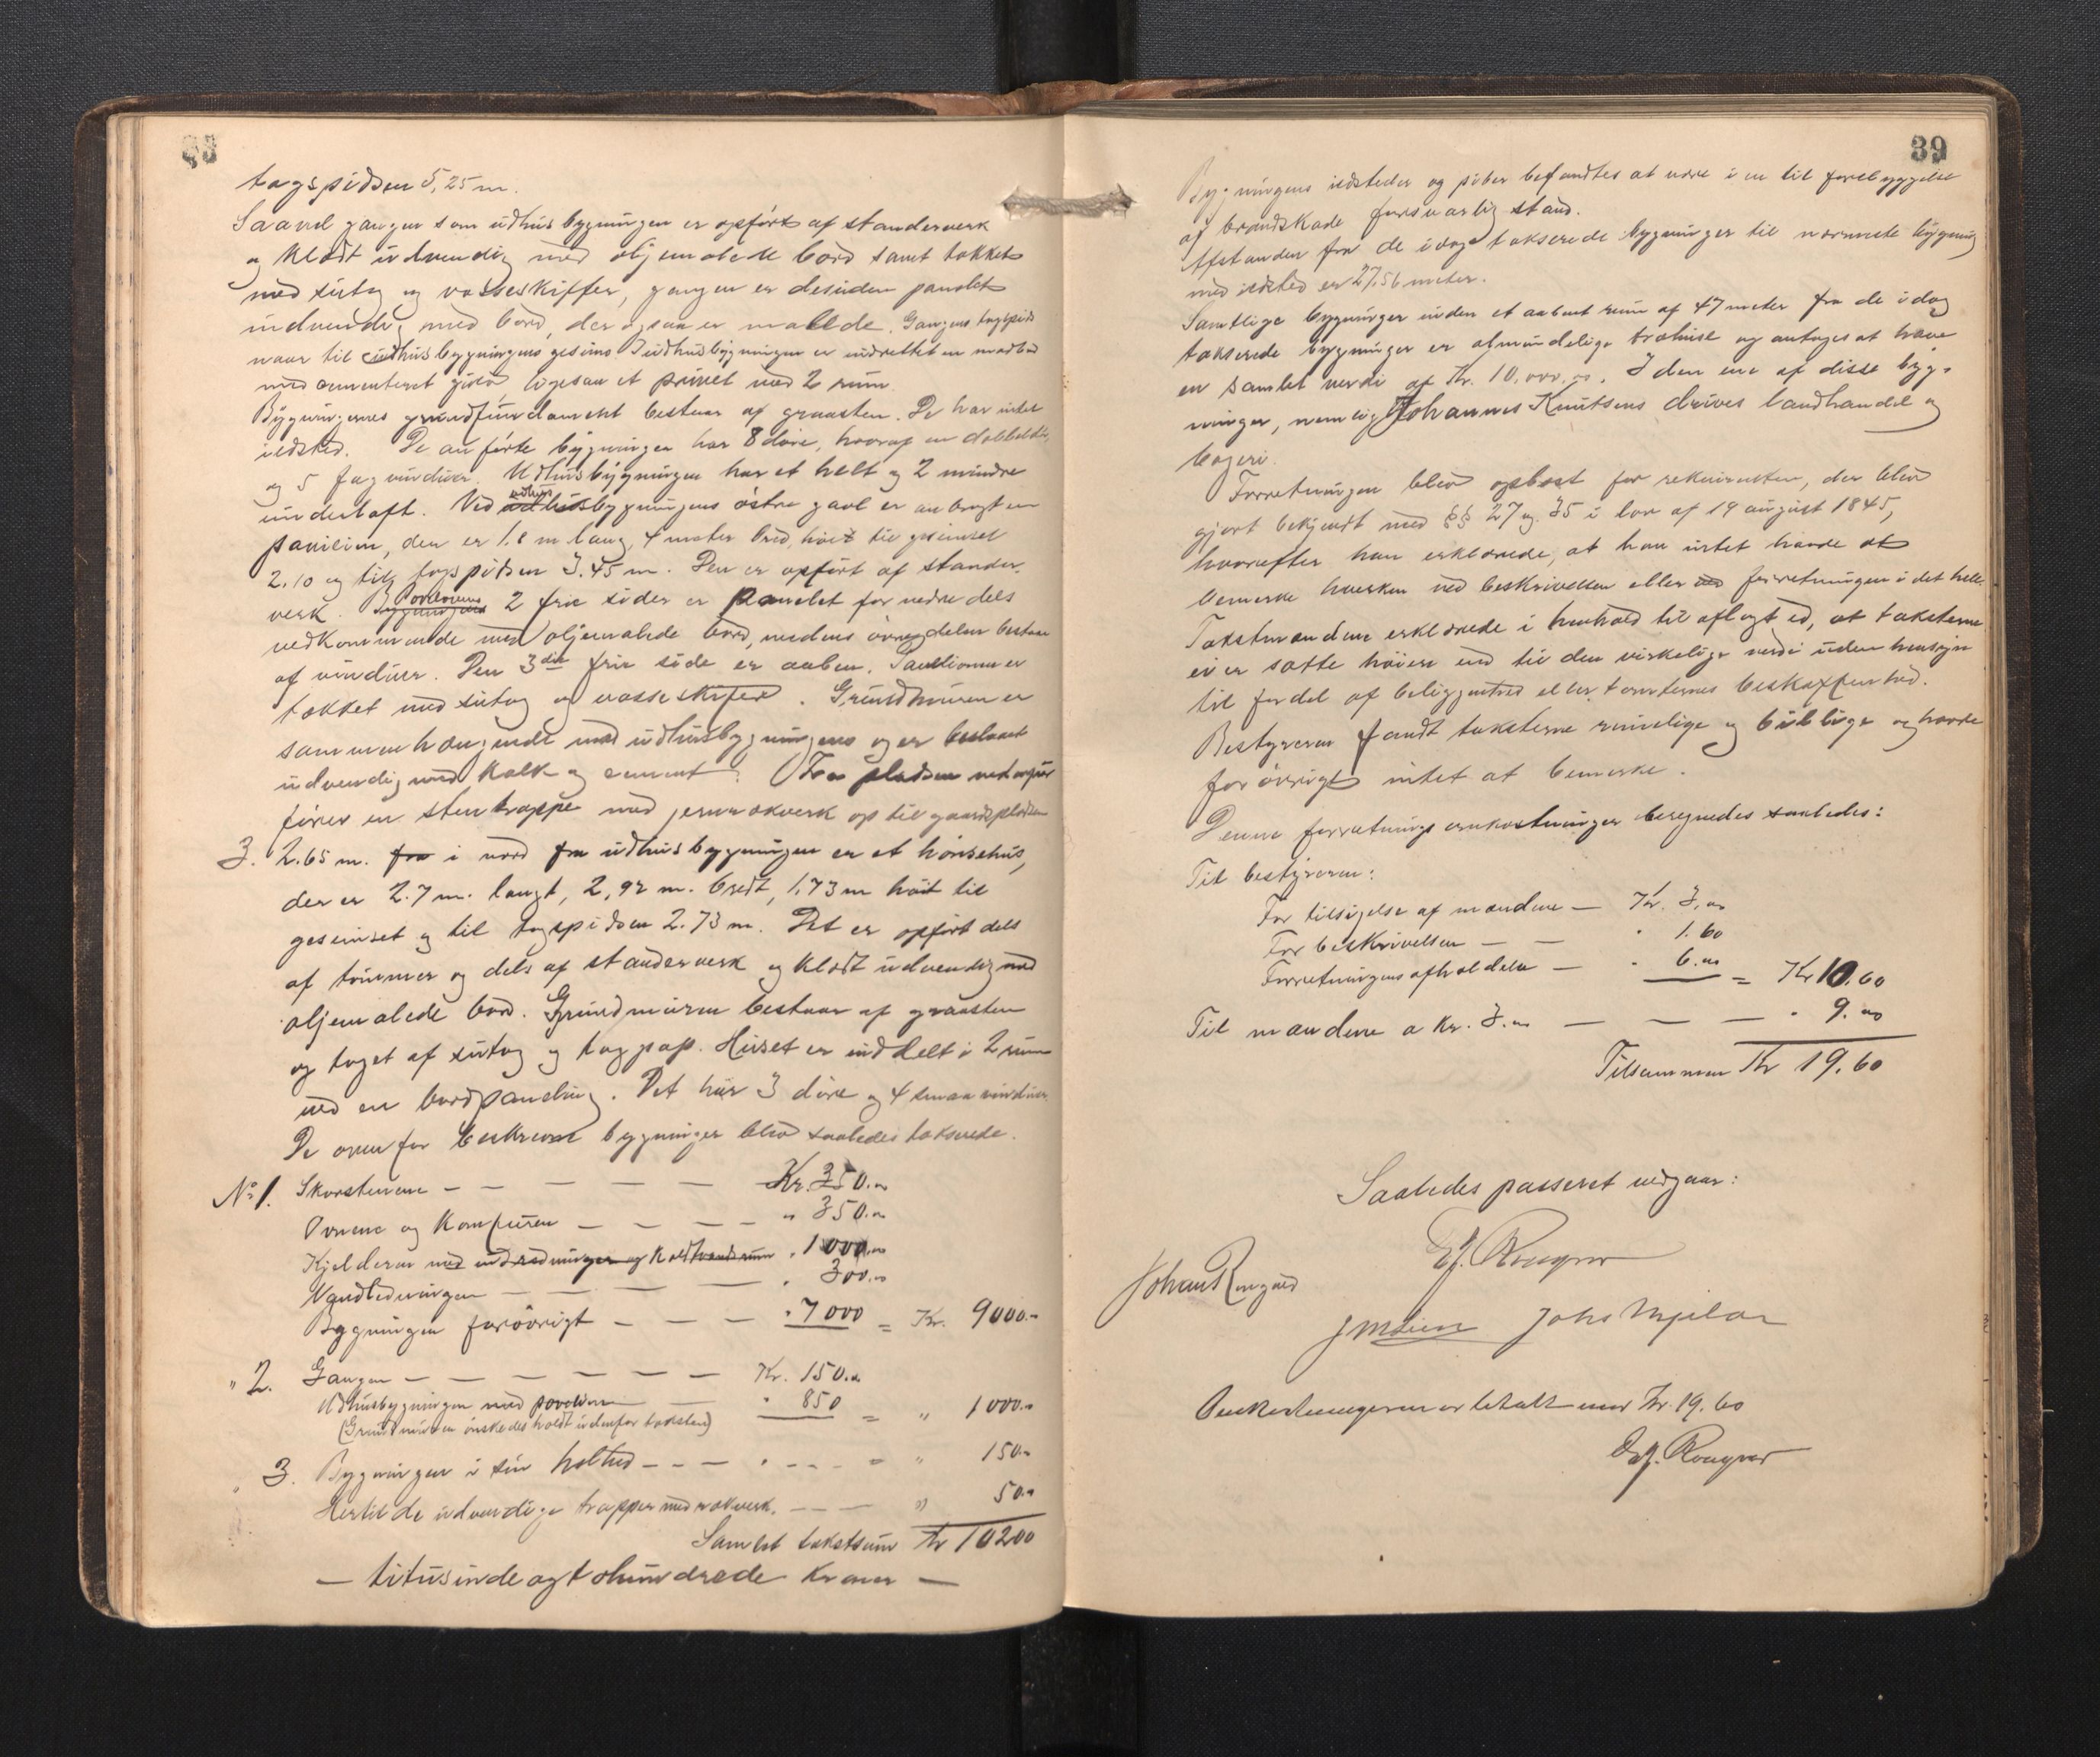 tagspidsen 5,25 m.
Saavel gangen som udhusbygningen er opført af standerverk
og klædt udvendig med oljemalede bord samt tækket
med sutag og vosseskiffer, gangen er desuden panelet
indvendig med bord, der ogsaa er malede. Gangens tagspids
naar til udhusbygningens gesims. I udhusbygningen er indrettet en
med cementeret gulv, ligesaa et privet med 2 rum.
Bygningernes grundfundament bestaar af graasten. De har intet
ildsted. De anførte bygninger har 8 døre, hvoraf en dobbeltdør,
og 5 fag vinduer. Udhusbygningen har et helt og 2 mindre
underloft. Ved udhusbygningens østre gavl er anbragt en
pavilion, der er 1.8 m lang, 4 meter bred, høit til gesimset
2.10 og til tagspidsen 3.45 m. Den er opført af stander-
verk. Pavilionens 2 frie sider er panelet for nedre dels
vedkommende med oljemalede bord, medens øvre delen bestaar
af vinduer. Den 3die frie side er aaben. Pavilionen er
tækket med sutag og vosseskifer. Grundmuren er
sammenhængende med udhusbygningens og er beslaaet
udvendig med kalk og cement. Fra pladsen nedenfor
fører en stentrappe med jernrækverk op til gaardspladsen
3. 2.65 m. fra i nord fra udhusbygningen er et hønsehus,
der er 2.7 m. langt, 2,92 m. bredt, 1.73 m høit til
gesimset og til tagspidsen 2.73 m. Det er opført dels
af tømmer og dels af standerverk og klædt udvendig med
oljemalede bord. Grundmuren bestaar af graasten
og taget af sutag og tagpap. Huset er inddelt i 2 rum
ved en bordpaneling. Det har 3 døre og 4 smaa vinduer
De ovenfor beskrevne bygninger blev saaledes takserede.
No 1. Skorstenene — — — — — Kr. 350.00
Ovnene og Komfuren — — — — " 350.00
Kjelderen med indredninger og Koldtvandsrum " 1000.00
Vandledningen — — — — " 300.00
Bygningen forøvrigt — — — " 7000 = Kr. 9000.-
" 2. Gangen — — — — — — Kr. 150.00
Udhusbygningen med pavilion — " 850 = " 1000.-
(Grundmuren ønskedes holdt udenfor taksten)
" 3. Bygningen i sin helhed — — — " — — — = " 150.-
Hertil de udvendige trapper med rækverk. — — — " 50.-
Samlet takstsum Kr 10200
— titusinde og tohundrede kroner —
39
Bygningens ildsteder og piber befandtes at være i en til forebyggelse
af brandskade forsvarlig stand.
Afstanden fra de idag takserede bygninger til nærmeste bygning
med ildsted er 27.56 meter.
Samtlige bygninger inden et aabent rum af 47 meter fra de idag
takserede bygninger er almindelige træhuse og antages at have
en samlet verdi af Kr. 10,000.00. I den ene af disse byg-
ninger, nemlig Johannes Knutsens drives landhandel og
bageri.
Forretningen blev oplæst for rekvirenten, der blev
gjort bekjendt med §§ 27 og 35 i lov af 19 august 1845,
hvorefter han erklærede, at han intet havde at
bemerke hverken ved beskrivelsen eller ved forretningen i det hele
Takstmændene erklærede i henhold til aflagt ed, at taksterne
ei er satte høiere end til den virkelige verdi uden hensyn
til fordel af beliggenhed eller tomternes beskaffenhed.
Bestyreren fandt taksterne rimelige og billige og havde
forøvrigt intet at bemerke.
Denne forretnings omkostninger beregnedes saaledes:
Til bestyreren:
For tilsigelse af mændene — Kr. 3.00
For beskrivelsen — — " 1.60
Forretningens afholdelse — " 6.00 = Kr 10.60
Til mændene a Kr. 3.00 — — — " 9.00
Tilsammen Kr 19.60
Saaledes passeret vedgaar:
Omkostningerne er betalt med Kr. 19.60